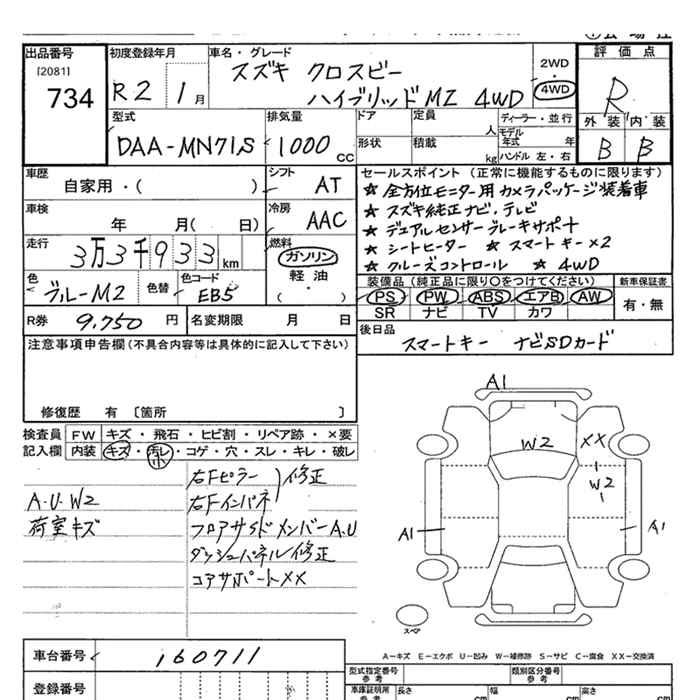 出品番号
[2081]
734
初度登録年月
R2 1月
車名・グレード
スズキ クロスビー
ハイブリッドMZ 4WD
2WD
4WD
評価点
R
外装 内装
B B
型式
DAA-MN71S
排気量
1000 cc
ドア
定員
人
ディーラー・並行
モデル年式 年
形状
積載
kg
ハンドル 左・右
車歴
自家用・( )
シフト
AT
車検
年 月( 日)
冷房
AAC
走行
3万3千933km
燃料
ガソリン
軽油
( ・ )
色
ブルーM2
色替
色コード
EB5
R券
9,750円
名変期限 月 日
セールスポイント (正常に機能するものに限ります)
★ 全方位モニター用カメラパッケージ装着車
★ スズキ純正ナビ、テレビ
★ デュアルセンサーブレーキサポート
★ シートヒーター ★ スマートキー×2
★ クルーズコントロール ★ 4WD
装備品(純正品に限り○をつけてください)
PS PW ABS エアB AW
SR ナビ TV カワ
新車保証書
有・無
後日品
スマートキー ナビSDカード
注意事項申告欄(不具合内容等は具体的に記入して下さい)
修復歴 有〔箇所 〕
検査員記入欄
FW キズ・飛石・ヒビ割・リペア跡・×要
内装 キズ・汚レ・コゲ・穴・スレ・キレ・破レ
小
A・U・W2
荷室キズ
右Fピラー
右Fインパネ
修正
フロアサイドメンバーA.U
ダッシュパネル修正
コアサポートXX
A1
W2
XX
W2
A1
A1
スペア
A―キズ E―エクボ U―凹み W―補修跡 S―サビ C―腐食 XX―交換済
車台番号
160711
登録番号
型式指定番号
参考
類別区分番号
参考
車庫証明用
参考
長さ cm
幅 cm
高さ cm